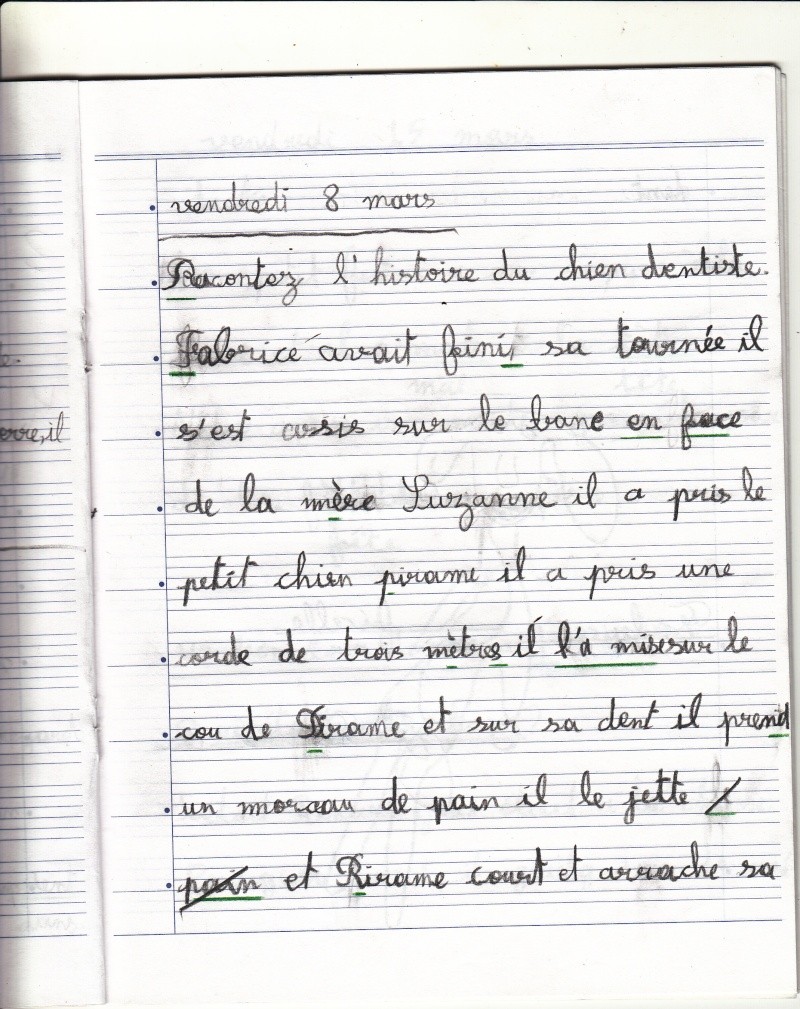 vendredi 8 mars
Racontez l'histoire du chien dentiste.
Fabrice avait fini, sa tournée il
erre, il
s'est assis sur le banc en face
de la mère Suzanne il a pris le
petit chien pirame il a pris une
corde de trois mètres il l'a mise sur le
cou de Pirame et sur sa dent il prend
un morceau de pain il le jette
pain et Pirame court et arrache sa